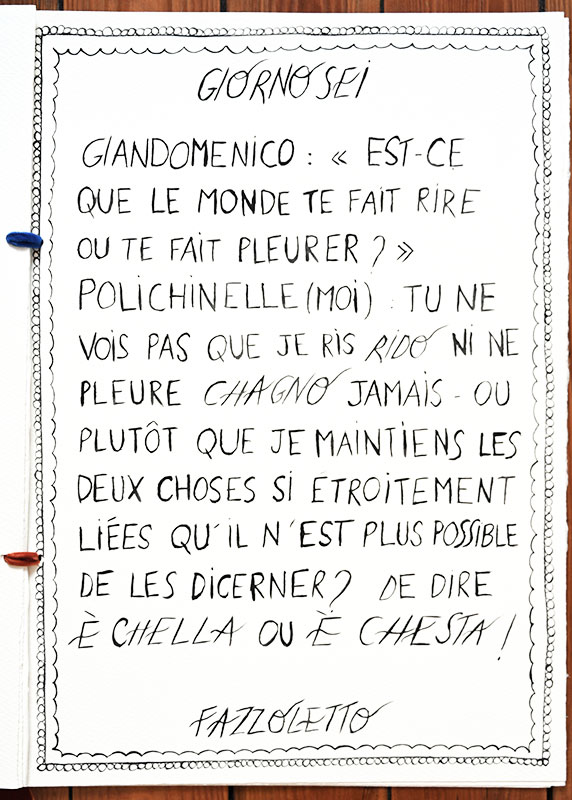 GIORNO SEI
GIANDOMENICO : « EST-CE
QUE LE MONDE TE FAIT RIRE
OU TE FAIT PLEURER ? »
POLICHINELLE (MOI) : TU NE
VOIS PAS QUE JE RIS RIDO NI NE
PLEURE CHAGNO JAMAIS - OU
PLUTÔT QUE JE MAINTIENS LES
DEUX CHOSES SI ETROITEMENT
LIÉES QU'IL N'EST PLUS POSSIBLE
DE LES DICERNER ? DE DIRE
È CHELLA OU È CHESTA !
FAZZOLETTO